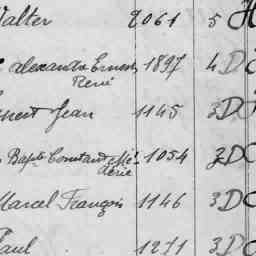 Walter 2061 5
Alexandre Ernest 1897 4 D
René
Ernest Jean 1145 3 D
Bapte Constant 1054 3 D C
Marcel François 1146 3 D C
Paul 1271 3 D